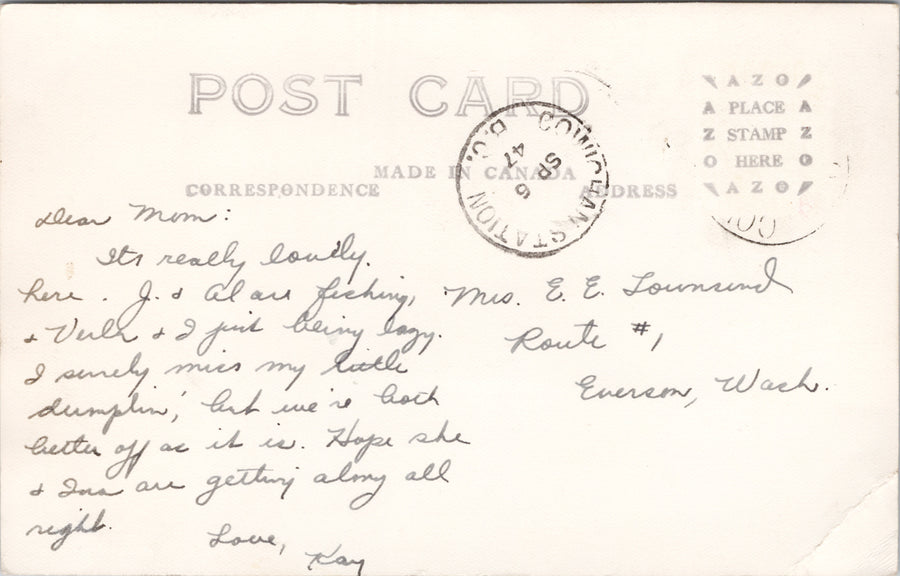 POST CARD
MADE IN CANADA
CORRESPONDENCE
ADDRESS
AZO
A PLACE A
Z STAMP Z
O HERE O
AZO
COWICHAN STATION
B.C.
SP 6
47
CO
Dear Mom:
It's really lovely.
here. J. & Al are fishing,
& Verla & I just being lazy.
I surely miss my little
dumplin', but we're both
better off as it is. Hope she
& Ina are getting along all
right.
Love,
Kay
Mrs. E. E. Townsend
Route #1
Everson, Wash.